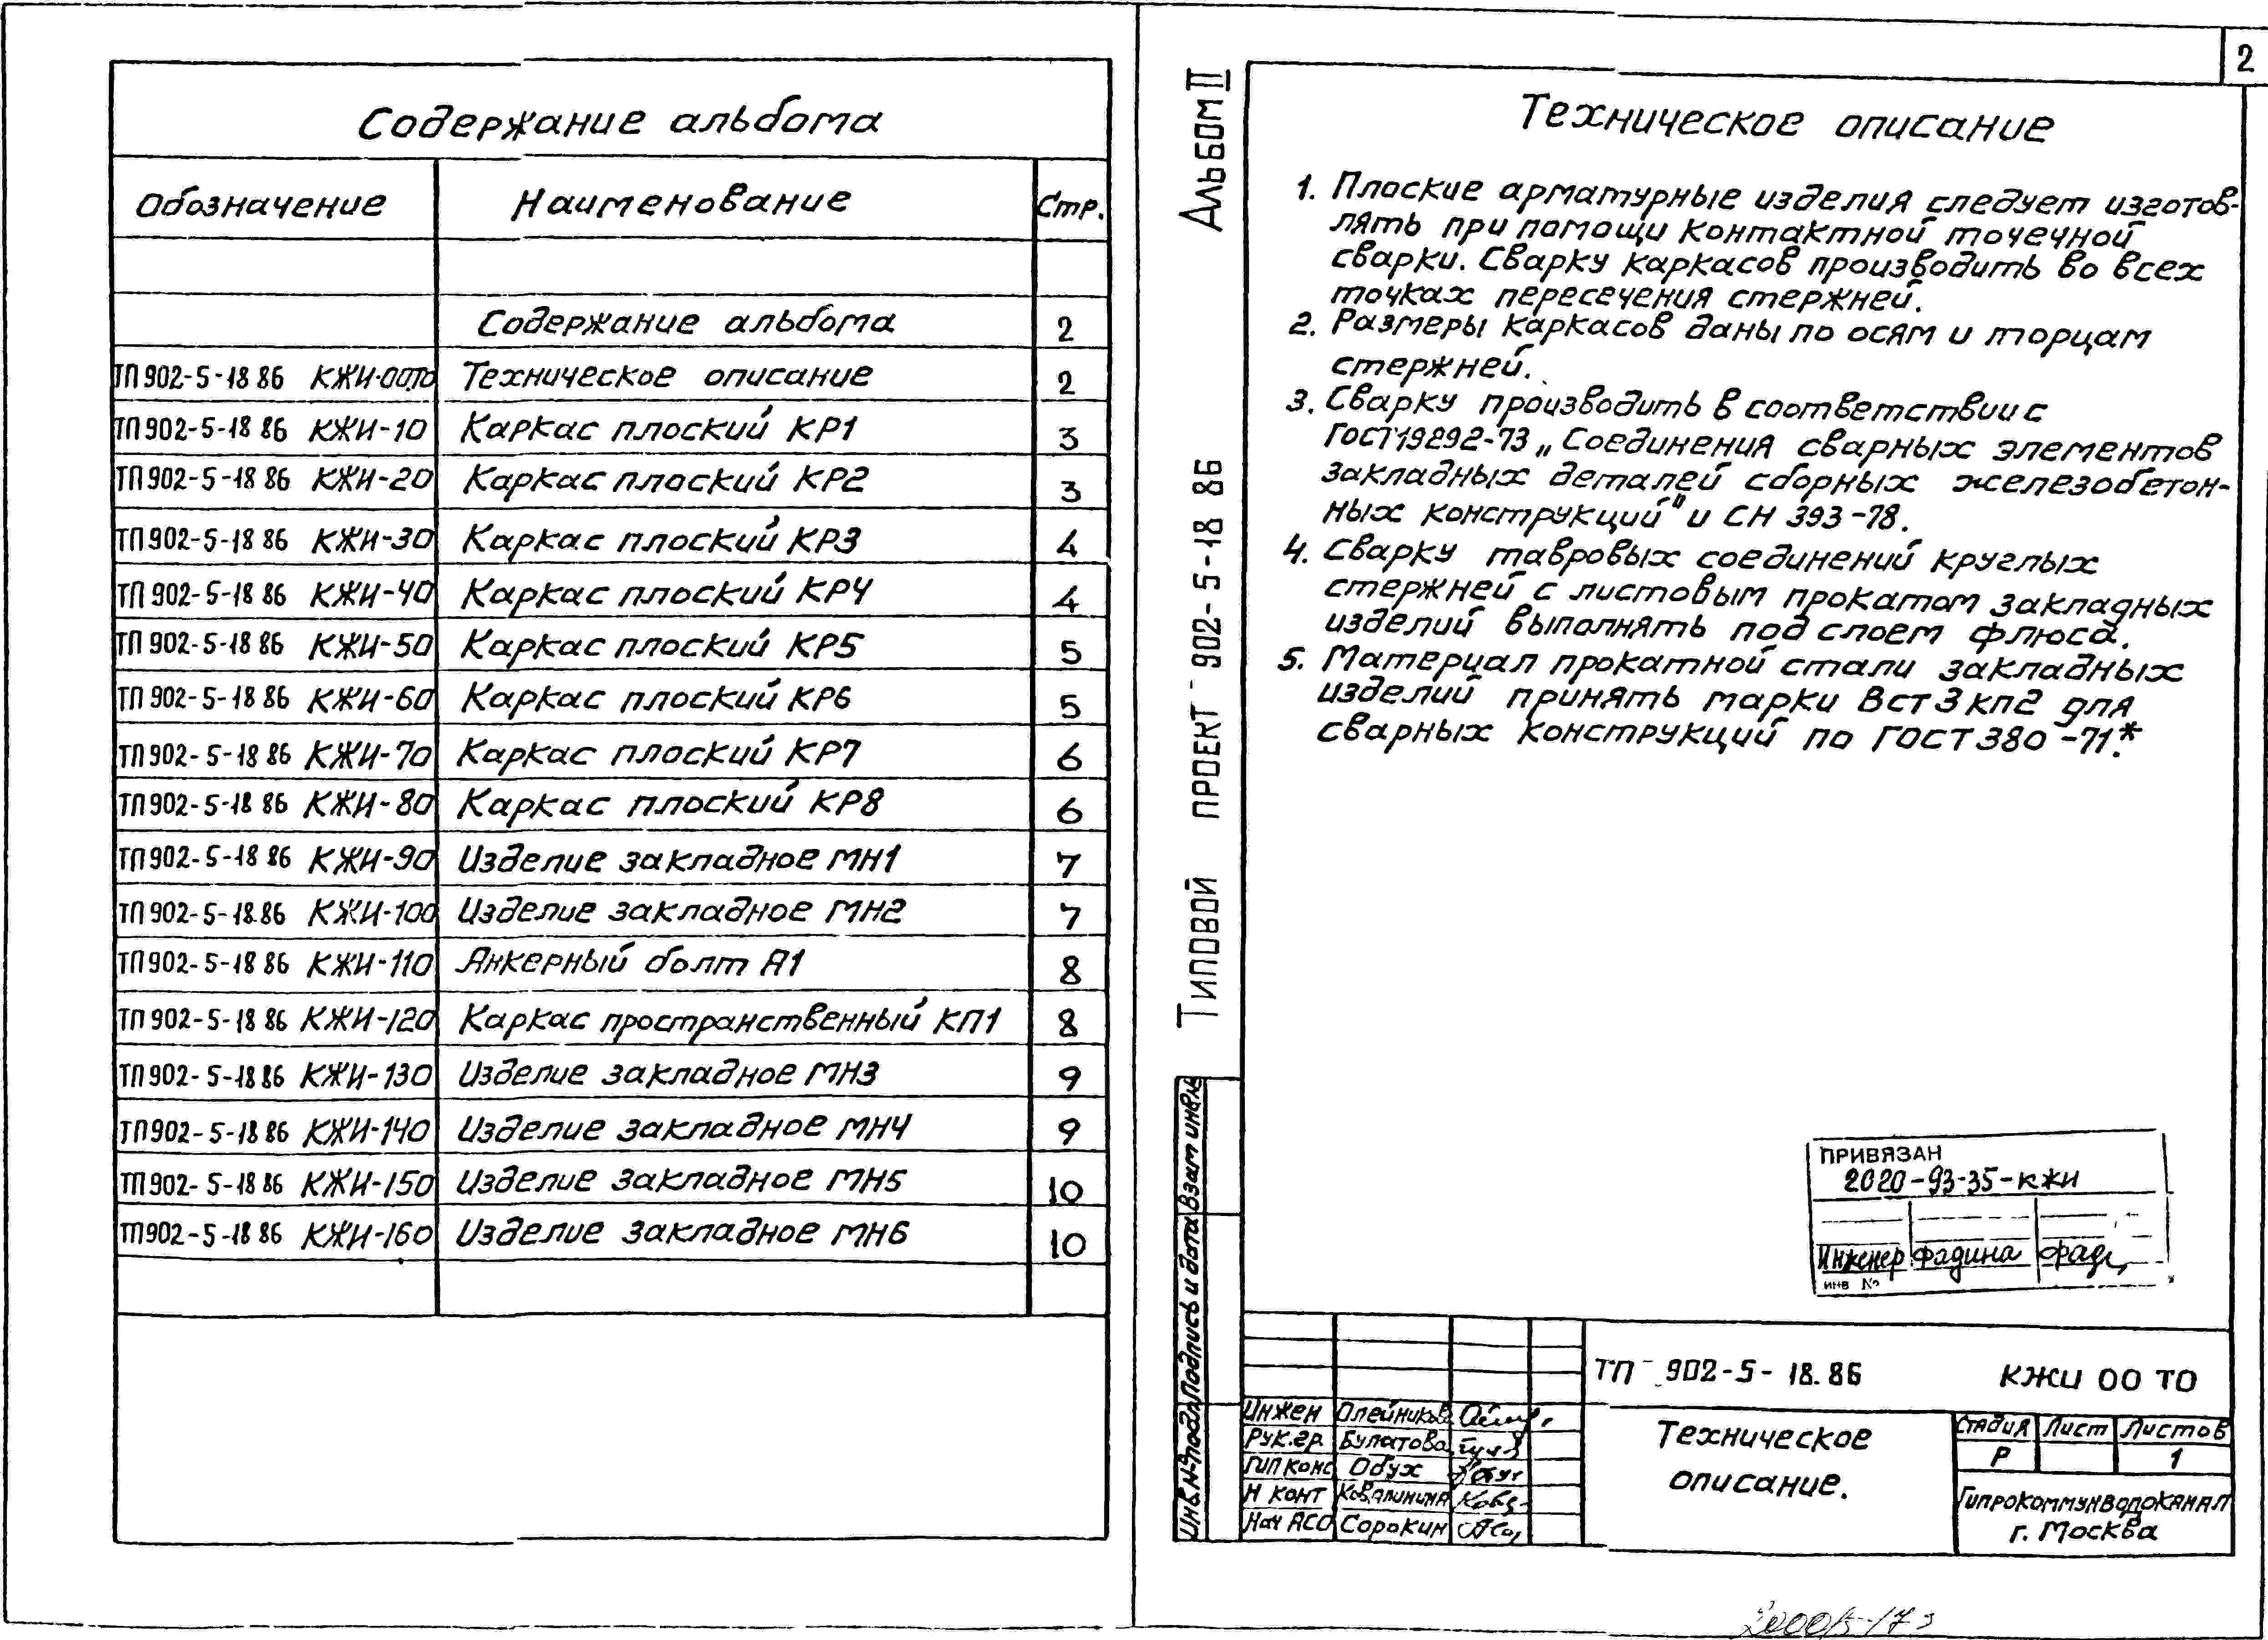 Содержание альбома
Обозначение Наименование Стр.
Содержание альбома 2
ТП 902-5-18 86 КЖИ-00ТО Техническое описание 2
ТП 902-5-18 86 КЖИ-10 Каркас плоский КР1 3
ТП 902-5-18 86 КЖИ-20 Каркас плоский КР2 3
ТП 902-5-18 86 КЖИ-30 Каркас плоский КР3 4
ТП 902-5-18 86 КЖИ-40 Каркас плоский КР4 4
ТП 902-5-18 86 КЖИ-50 Каркас плоский КР5 5
ТП 902-5-18 86 КЖИ-60 Каркас плоский КР6 5
ТП 902-5-18 86 КЖИ-70 Каркас плоский КР7 6
ТП 902-5-18 86 КЖИ-80 Каркас плоский КР8 6
ТП 902-5-18 86 КЖИ-90 Изделие закладное МН1 7
ТП 902-5-18.86 КЖИ-100 Изделие закладное МН2 7
ТП 902-5-18 86 КЖИ-110 Анкерный болт А1 8
ТП 902-5-18 86 КЖИ-120 Каркас пространственный КП1 8
ТП 902-5-18 86 КЖИ-130 Изделие закладное МН3 9
ТП 902-5-18 86 КЖИ-140 Изделие закладное МН4 9
ТП 902-5-18 86 КЖИ-150 Изделие закладное МН5 10
ТП 902-5-18 86 КЖИ-160 Изделие закладное МН6 10
2
Типовой проект 902-5-18 86 Альбом III
Техническое описание
1. Плоские арматурные изделия следует изготов-
лять при помощи контактной точечной
сварки. Сварку каркасов производить во всех
точках пересечения стержней.
2. Размеры каркасов даны по осям и торцам
стержней.
3. Сварку производить в соответствии с
ГОСТ 19292-73 „Соединения сварных элементов
закладных деталей сборных железобетон-
ных конструкций" и СН 393-78.
4. Сварку тавровых соединений круглых
стержней с листовым прокатом закладных
изделий выполнять под слоем флюса.
5. Материал прокатной стали закладных
изделий принять марки Вст3кп2 для
сварных конструкций по ГОСТ 380-71.*
ПРИВЯЗАН
2020-93-35-КЖИ
Инженер Фадина Фад
ИНВ №
Инв.№подл. Подпись и дата Взам инв.№
ТП 902-5-18.86 КЖИ 00 ТО
Инжен Олейников
Рук.гр. Булатова
ГИП конс Обух
Н конт Ковалинина
Нач АСО Сорокин
Техническое
описание.
Стадия Лист Листов
Р 1
Гипрокоммунводоканал
г. Москва